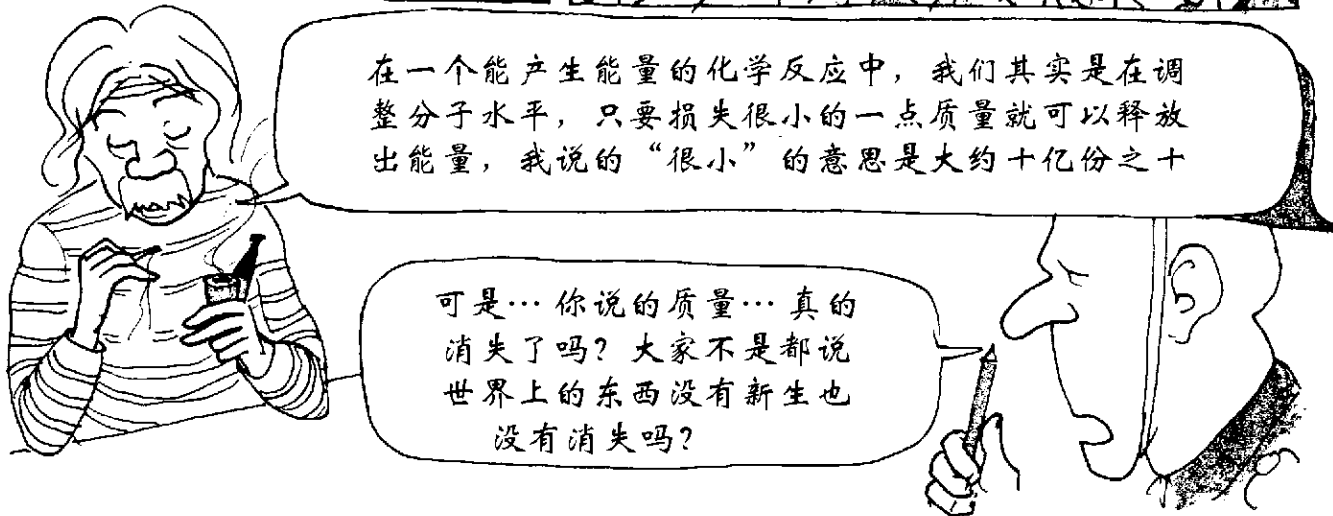 在一个能产生能量的化学反应中，我们其实是在调
整分子水平，只要损失很小的一点质量就可以释放
出能量，我说的“很小”的意思是大约十亿份之十
可是…你说的质量…真的
消失了吗？大家不是都说
世界上的东西没有新生也
没有消失吗？